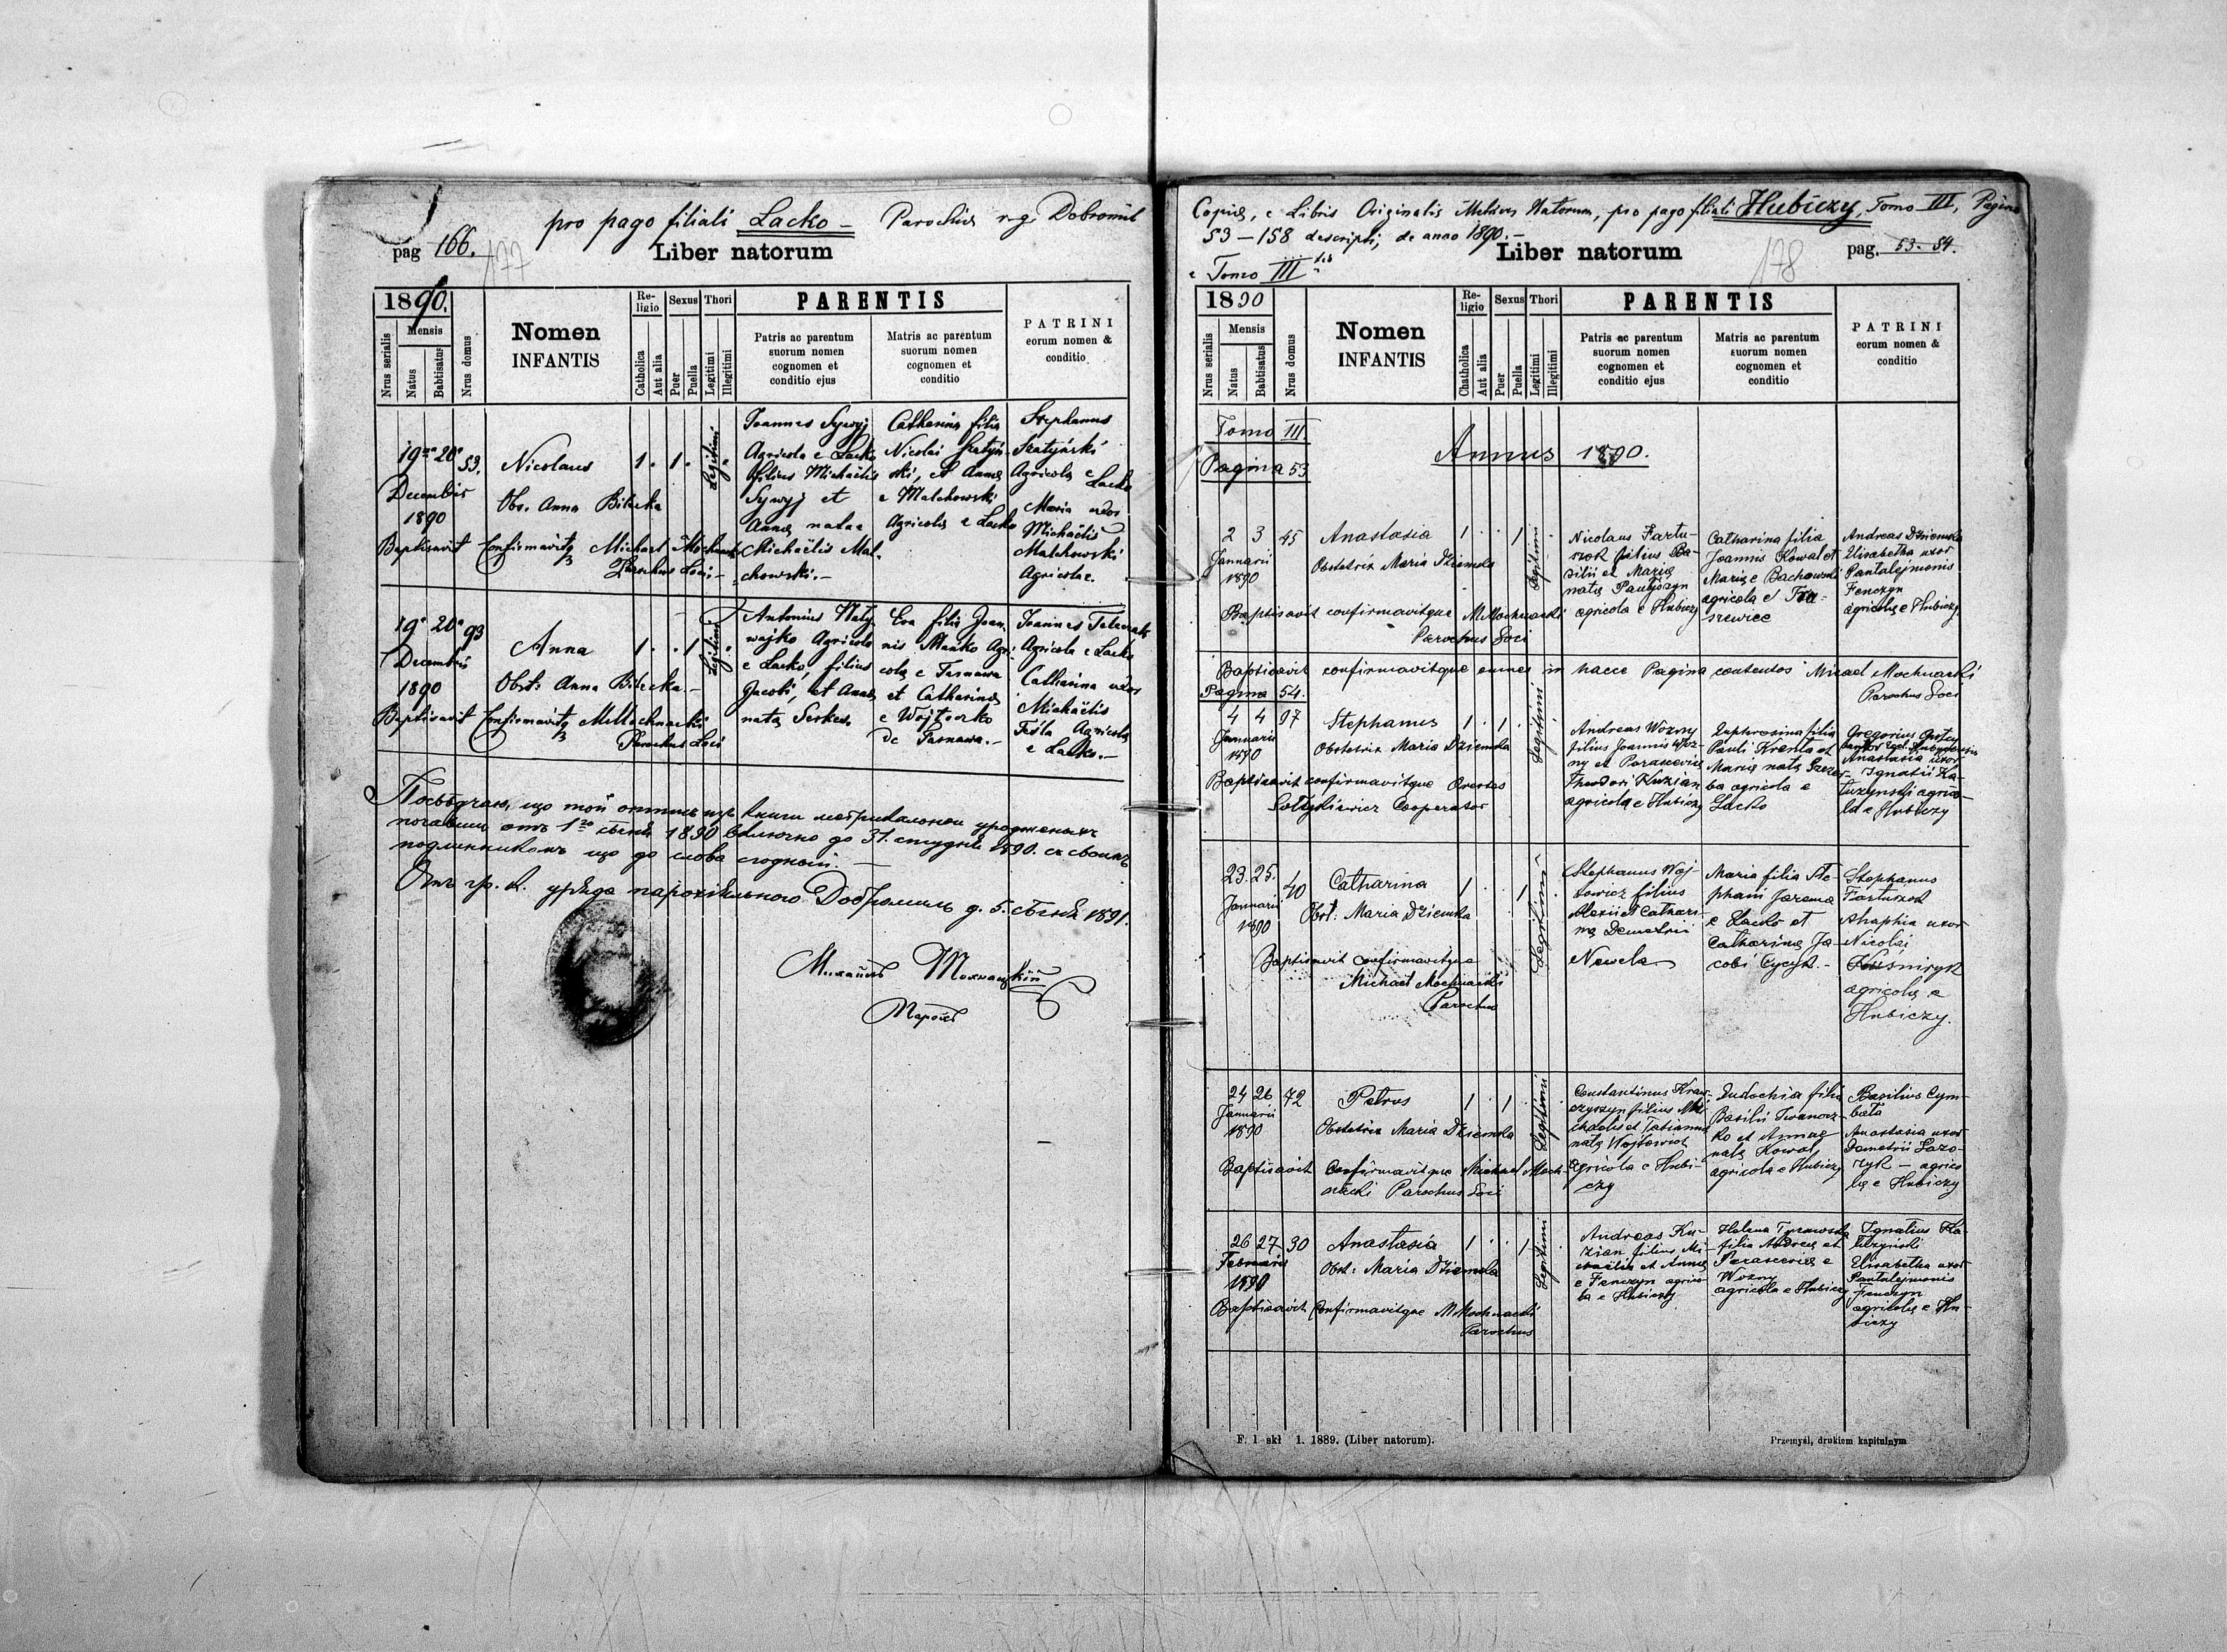 pro pago filiali Lacko – Parochia r.g. Dobromil
pag 166.
177
Liber natorum
1890.
Nrus serialis
Mensis
Natus
Babtisatus
Nrus domus
Nomen
INFANTIS
Re-
ligio
Catholica
Aut alia
Sexus
Puer
Puella
Thori
Legitimi
Illegitimi
PARENTIS
Patris ac parentum
suorum nomen
cognomen et
conditio ejus
Matris ac parentum
suorum nomen
cognomen et
conditio
PATRINI
eorum nomen &
conditio
19 20 53.
Decembris
1890
Nicolaus
Obs. Anna Bilecka
1 . 1 .
Legitimi
Joannes Sywyj
Agricola e Lacko
filius Michaëlis
Sywyj et
Annæ natae
Michaëlis Mal-
chowski.–
Catharina filia
Nicolai
et Annæ
e Malchowski
Agricolæ e Lacko
Stephanus
Agricola e Lacko
Maria uxor
Michaëlis
Malchowski
Agricolae.
Baptisavit Confirmavitq Michael Mochnacki
Parochus Loci –
19 20 93
Decembris
1890
Anna
Obst: Anna Bilecka –
1 . . 1
Legitimi
Antonius
Agricola
e Lacko, filius
Jacobi, et Annæ
natæ
Eva filia Joan-
nis Mańko Agri-
colæ e Tarnawa
et Catharinæ
e
de Tarnawa.–
Joannes
Agricola e Lacko
Catharina uxor
Michaëlis
Agricolæ
e Lacko.–
Baptisavit Confirmavitq MMochnacki
Parochus Loci
Посвѣдчаю, що той
1890 до 31. 1890.
до слова
Отъ гр. к. уряда парохіяльного Добромиль д. 5. 1891.
Михаилъ Мохнацкій
Парохъ
Copia, e Libris Originalis Natorum, pro pago filiali Hubiczy, Tomo III, Pagina
53 – 158 descripti, de anno 1890.–
e Tomo III
Liber natorum
178
pag. 53-54.
1890
Nrus serialis
Mensis
Natus
Babtisatus
Nrus domus
Nomen
INFANTIS
Re-
ligio
Chatholica
Aut alia
Sexus
Puer
Puella
Thori
Legitimi
Illegitimi
PARENTIS
Patris ac parentum
suorum nomen
cognomen et
conditio ejus
Matris ac parentum
suorum nomen
cognomen et
conditio
PATRINI
eorum nomen &
conditio
Tomo III
Pagina 53
Annus 1890.
2 3 45
Januarii
1890
Anastasia
Obstetrix Maria Dziemska
1 . . 1
Legitimi
Nicolaus Fartu-
szok filius Ba-
silii et Mariæ
natæ
agricola e Hubiczy
Catharina filia
Joannis Kowal et
Mariæ e Bachowski
agricola e
Andreas Dziemska
Elisabetha uxor
Pantalejmonis
Fenczyn
agricolæ e Hubiczy
Baptisavit confirmavitque MMochnacki
Parochus Loci
Baptisavit confirmavitque omnes in hacce Pagina contentos Micael Mochnacki
Parochus Loci
Pagina 54.
4 4 97
Januarii
1890
Stephanus
Obstetrix Maria Dziemska
1 . 1 .
Legitimi
Andreas Wozny
filius Joannis Woz-
ny et Parasceviæ
Theodori Kuzian
agricolæ e Hubiczy
Euphrosina filia
Pauli Krenta et
Mariæ natæ
ba agricola e
Lacko
Gregorius
Anastasia uxor
Ignatii Ka-
luzynski agrico-
læ e Hubiczy
Baptisavit confirmavitque Orestes
Cooperator
23. 25. 40
Januarii
1890
Catharina
Obst: Maria Dziemska
1 . . 1
Legitimi
Stephanus Woj-
towicz filius
Alexii et Cathari-
næ Demetrii
Newela
Maria filia Ste-
phani Jarema
e Lacko et
Catharinæ Ja-
cobi Cycyk.–
Stephanus
Fartuszok
Ahaphia uxor
Nicolai
Kuśniryk
agricolæ e
Hubiczy.
Baptisavit confirmavitque
Michael Mochnacki
Parochus
24 26 72
Januarii
1890
Petrus
Obstetrix Maria Dziemska
1 . 1 .
Legitimi
Constantinus Kraw-
czyszyn filius Mi-
chaelis et Tatiannæ
natæ Wojtowicz
agricola e Hubi-
czy
Eudochia filia
Basilii Iwanocz-
ko et Annae
natæ Kowal
agricola e Hubiczy
Basilius Cym-
bała
Anastasia uxor
Demetrii Lazo-
ryk – agrico-
læ e Hubiczy
Baptisavit Confirmavitque Michael Moch-
nacki Parochus Loci
26 27 30
Februarii
1890
Anastasia
Obst: Maria Dziemska
1 . . 1
Legitimi
Andreas Ku-
zian filius Mi-
chaëlis et Annæ
e Fenczyn agrico-
la e Hubiczy
Helena Tyrawska
filia Andreæ et
Parasceviæ e
Wozny
agricola e Hubiczy
Ignatius Ka-
luzynski
Elisabetha uxor
Pantalejmonis
Fenczyn
agricolæ e Hu-
biczy
Baptisavit Confirmavitque MMochnacki
Parochus
F. 1 skł 1. 1889. (Liber natorum).
Przemyśl, drukiem kapitulnym